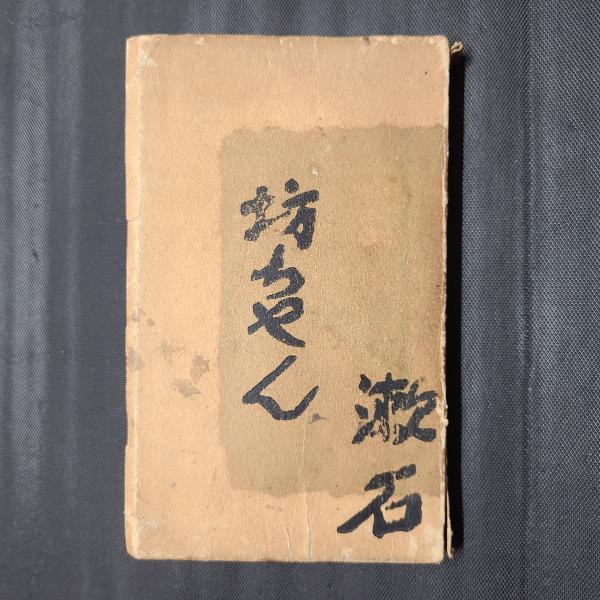 坊ちやん
漱石